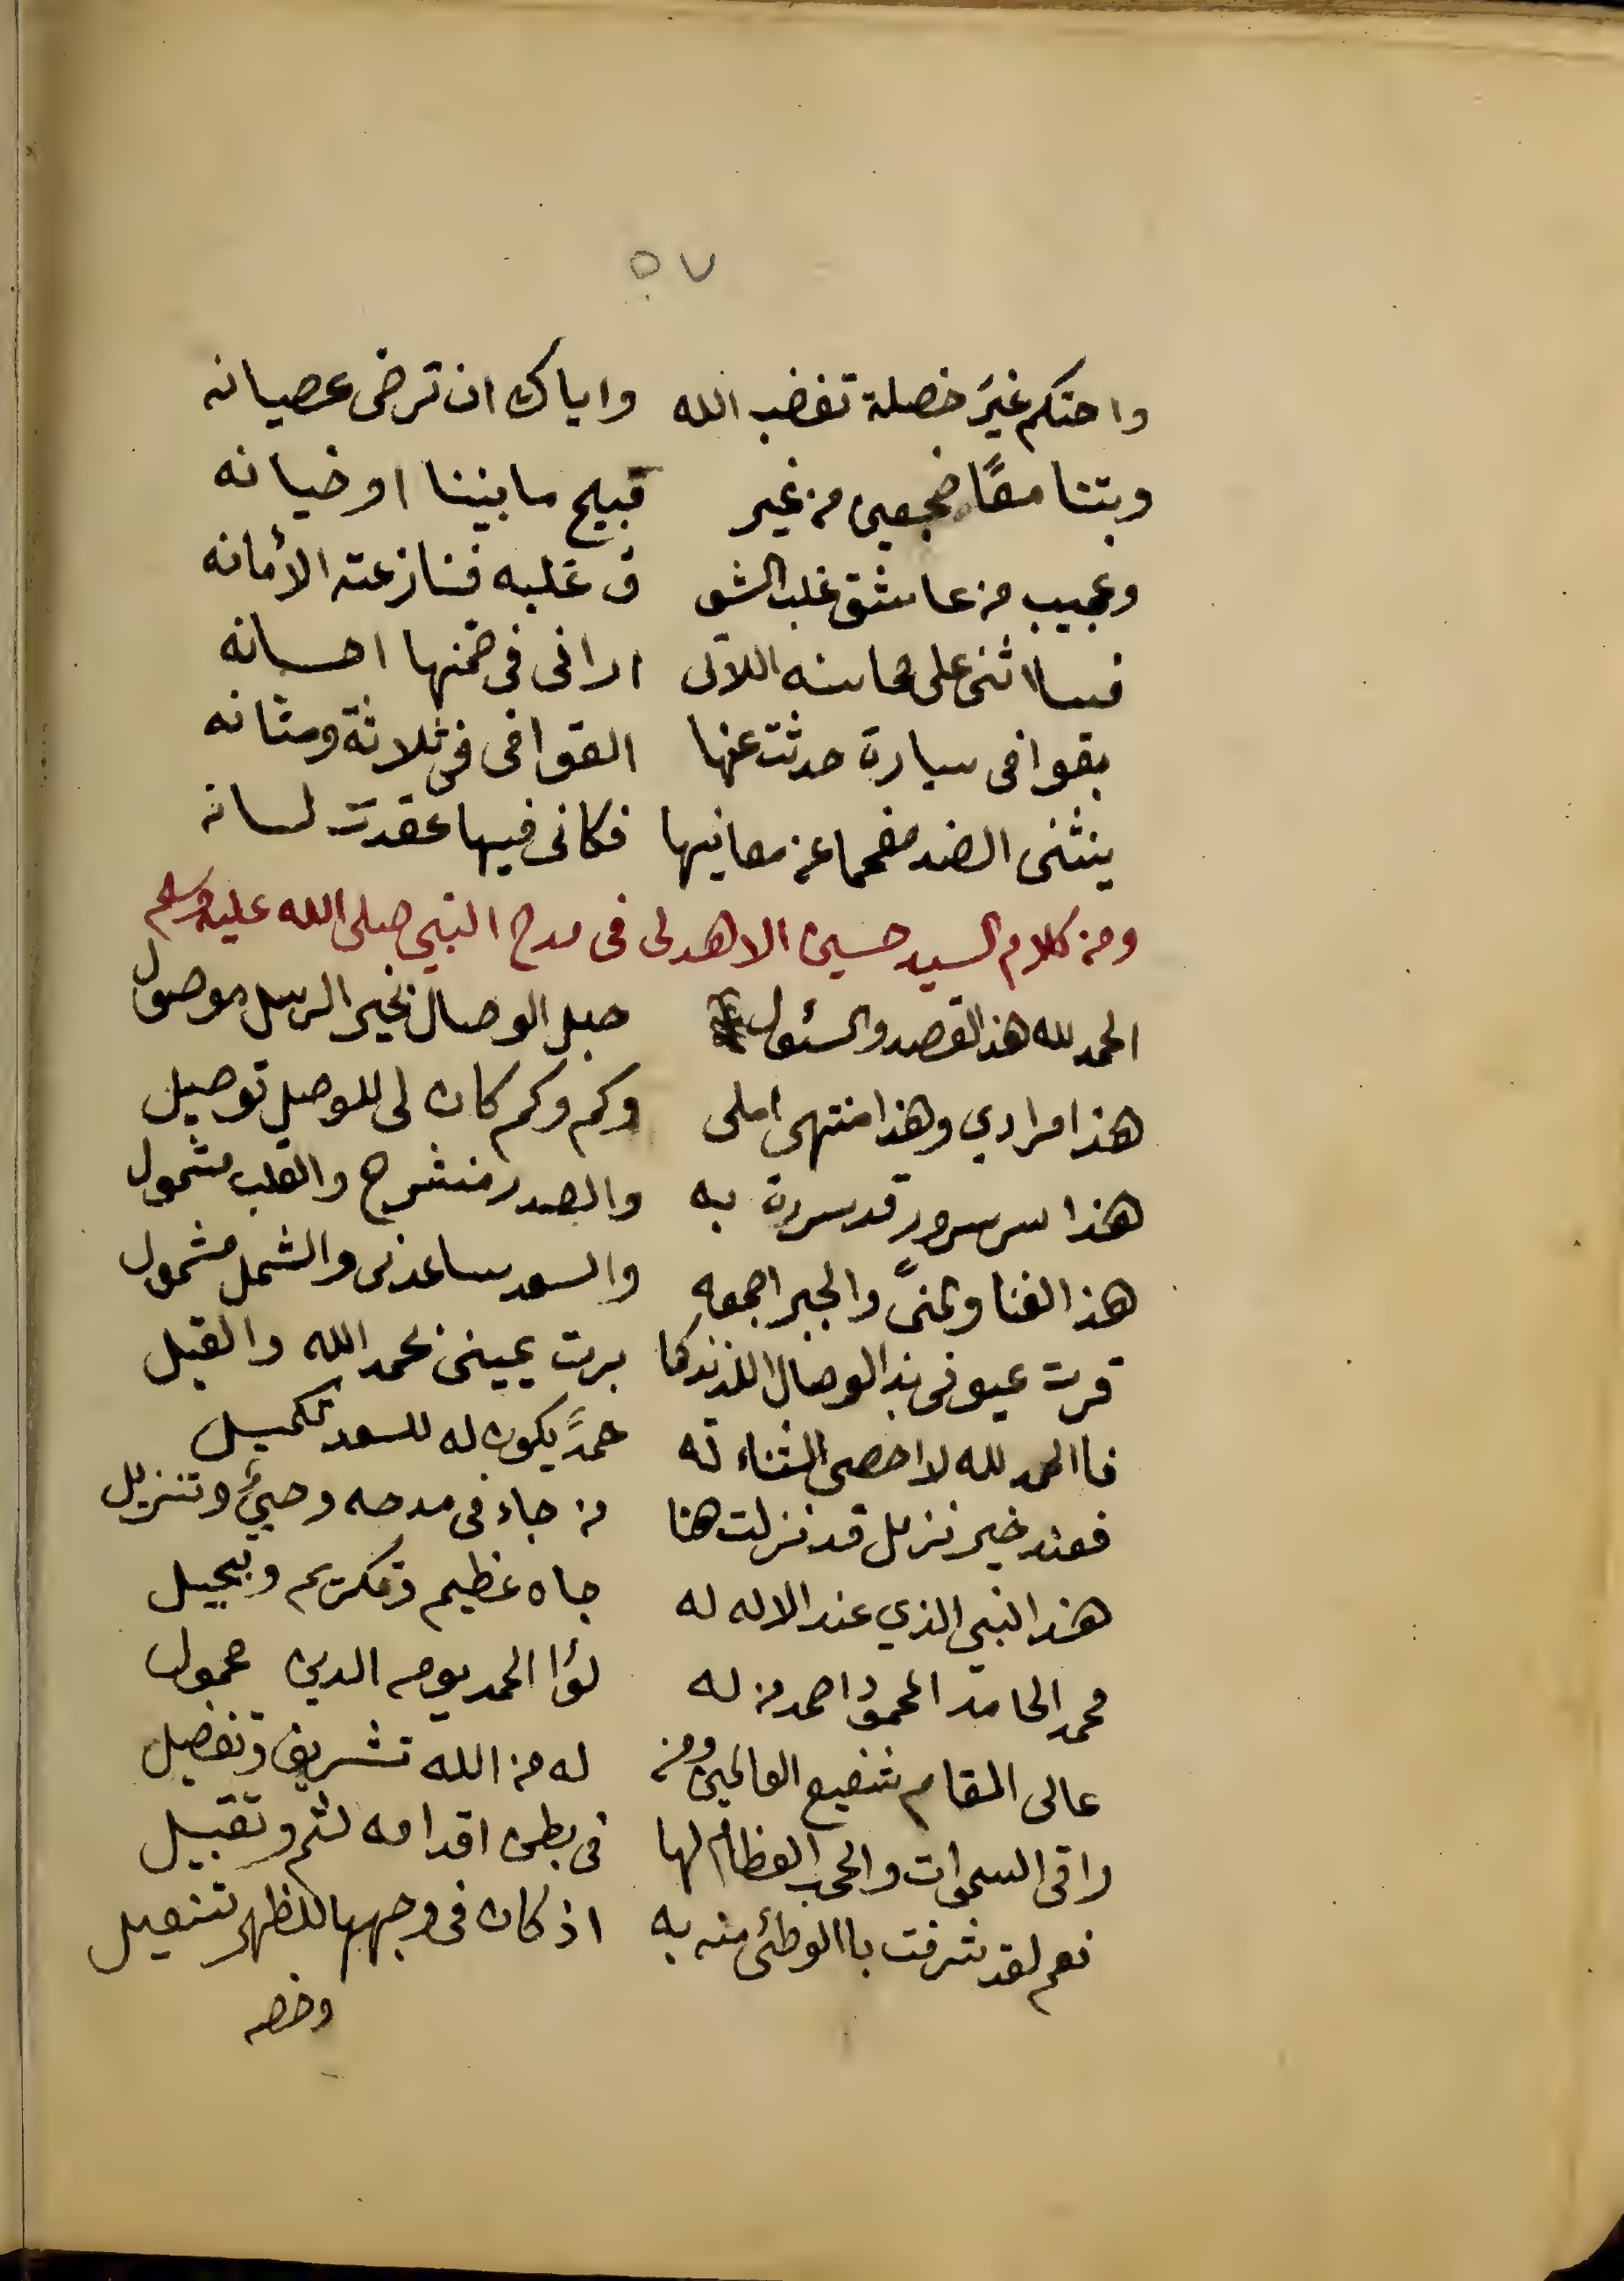 ٥٧
واحتكم غير خصلة تغضب الله واياك ان ترضى عصيانه
وبتنا معًا ضجيعين من غير قبيح ما بيننا او خيانه
وعجيب من عاشق غلب الشو ق عليه فنازعته الأمانه
فسا اثنى على محاسنه اللاتى ارانى فى ضمنها احسانه
بقوافى سيارة حدثت عنها القوافى فى ثلاثة ومثانه
ينثنى الضد مفحما عن معانيها فكانى فيها عقدت لسانه
ومن كلام السيد حسين الاهدلى فى مدح النبي صلى الله عليه وسلم
الحمد لله هذا القصد والسئول حبل الوصال بخير الرسل موصول
هذا مرادي وهذا منتهى املى وكم وكم كان لى للوصل توصيل
هذا سر سرور قد سررة به والصدر منشرح والقلب مشمول
هذ الغنا والجبر اجمعه والسعد ساعدنى والشمل مشمول
قرت عيونى بذ الوصال اللذيذ كما برت يمينى بحمد الله والقيل
فاالحمد لله لا احصى الثناء له حمدً يكون له للسعد تكميل
فعند خير نزيل قد نزلت هنا من جاء فى مدحه وحيٌ وتنزيل
هذ النبي الذي عند الاله له جاه عظيم وتكريم وتبجيل
محمد الحامد المحمود احمد من له لؤا الحمد يوم الدين محمول
عالى المقام شفيع العالمين ومن له من الله تشريف وتفضيل
راقى السموات والحجب العظام لها فى بطن اقدامه لثم وتقبيل
نعم لقد شرفت باالوطئ منه به اذ كان فى وجهها للظهر تنعيل
وخصه